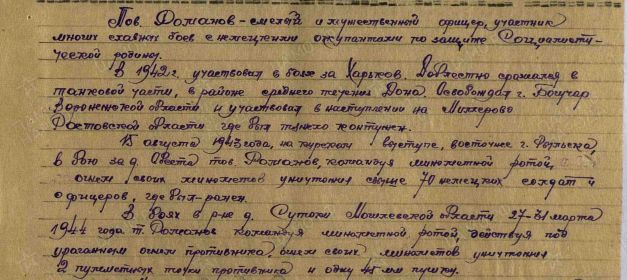 Тов. Романов - смелый и мужественный офицер, участник
многих славных боев с немецкими оккупантами по защите Социалисти-
ческой родины.
В 1942 г. участвовал в боях за Харьков. Доблестно сражался в
танковой части, в районе среднего течения Дона. Освобождал г. Богучар
Воронежской области и участвовал в наступлении на Миллерово
Ростовской области где был тяжело контужен.
15 августа 1943 года, на курском выступе, восточнее г.
в бою за д. тов. Романов, командуя минометной ротой,
огнем своих минометов уничтожил свыше 70 немецких солдат и
офицеров, где был ранен.
В боях в р-не д. Сутоки области 27-31 марта
1944 года т. Романов командуя минометной ротой, действуя под
ураганным огнем противника, огнем своих минометов уничтожил
2 пулеметных точки противника и одну 45 мм пушку.